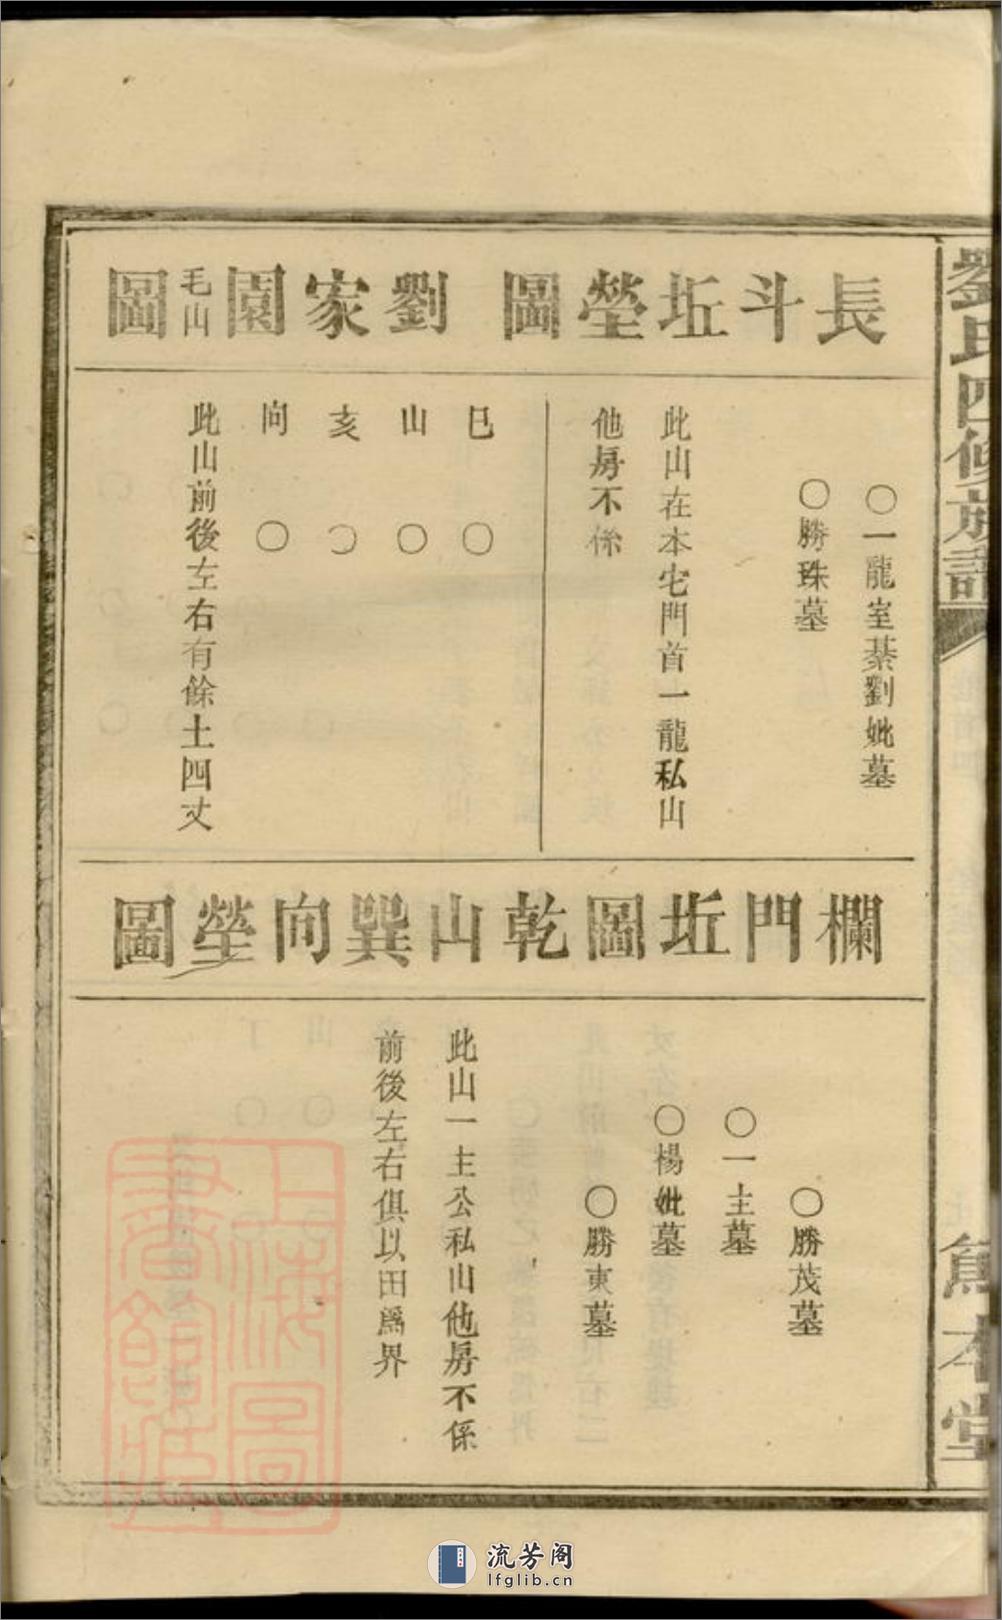 劉氏四修族譜
長斗坵塋圖
〇一龍室綦劉妣墓
〇勝珠墓
此山在本宅門首一龍私山
他房不係
劉家園毛山圖
巳〇
山〇
亥〇
向〇
此山前後左右有餘土四丈
欄門坵圖乾山巽向塋圖
〇勝茂墓
〇一主墓
〇楊妣墓
〇勝東墓
此山一主公私山他房不係
前後左右俱以田爲界
本堂
上海圖書館藏
流芳阁
lfglib.cn